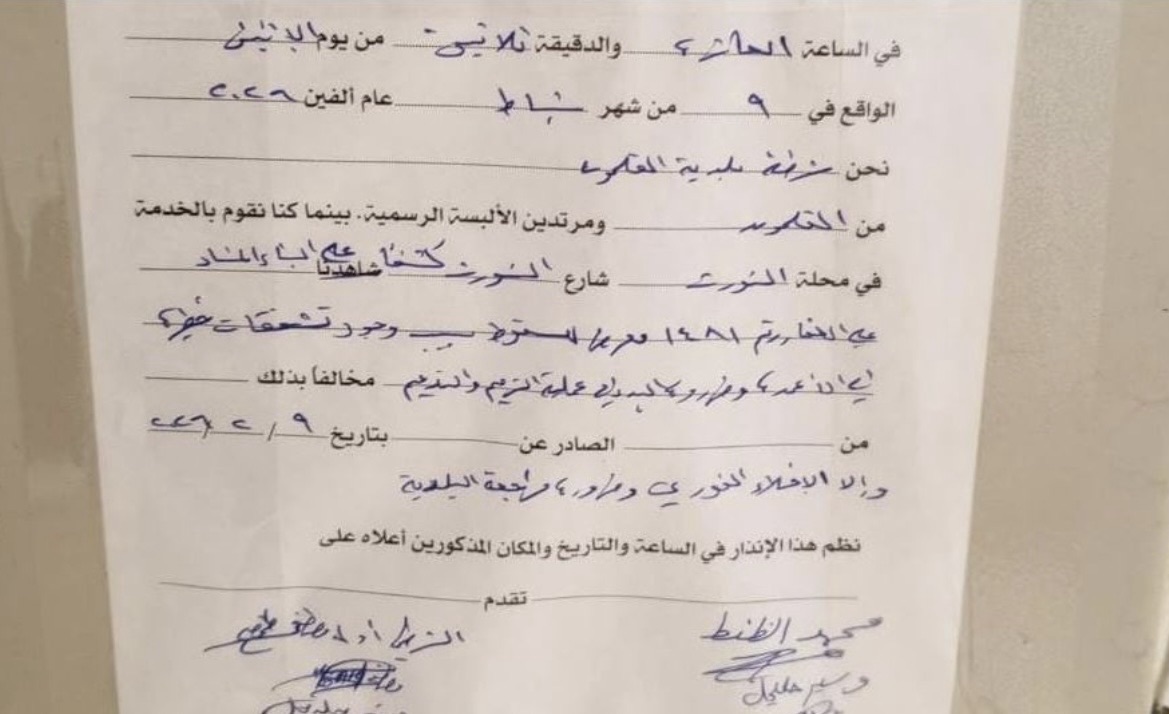 في الساعة العاشرة والدقيقة ثلاثين من يوم الإثنين
الواقع في ٩ من شهر شباط عام ألفين ٢٠٢٦
نحن شرطة بلدية القلمون
من القلمون ومرتدين الألبسة الرسمية. بينما كنا نقوم بالخدمة
في محلة شارع كشفنا شاهدنا على البناء المشاد
على العقار رقم ١٤٨١ معرض للسقوط بسبب وجود تشققات خطيرة
في الأعمدة وضرورة البدء في عملية الترميم والتدعيم مخالفاً بذلك
من الصادر عن بتاريخ ٩ / ٢ / ٢٠٢٦
وإلا الإخلاء الفوري وضرورة مراجعة البلدية
نظم هذا الإنذار في الساعة والتاريخ والمكان المذكورين أعلاه على
تقدم
محمد الظنط